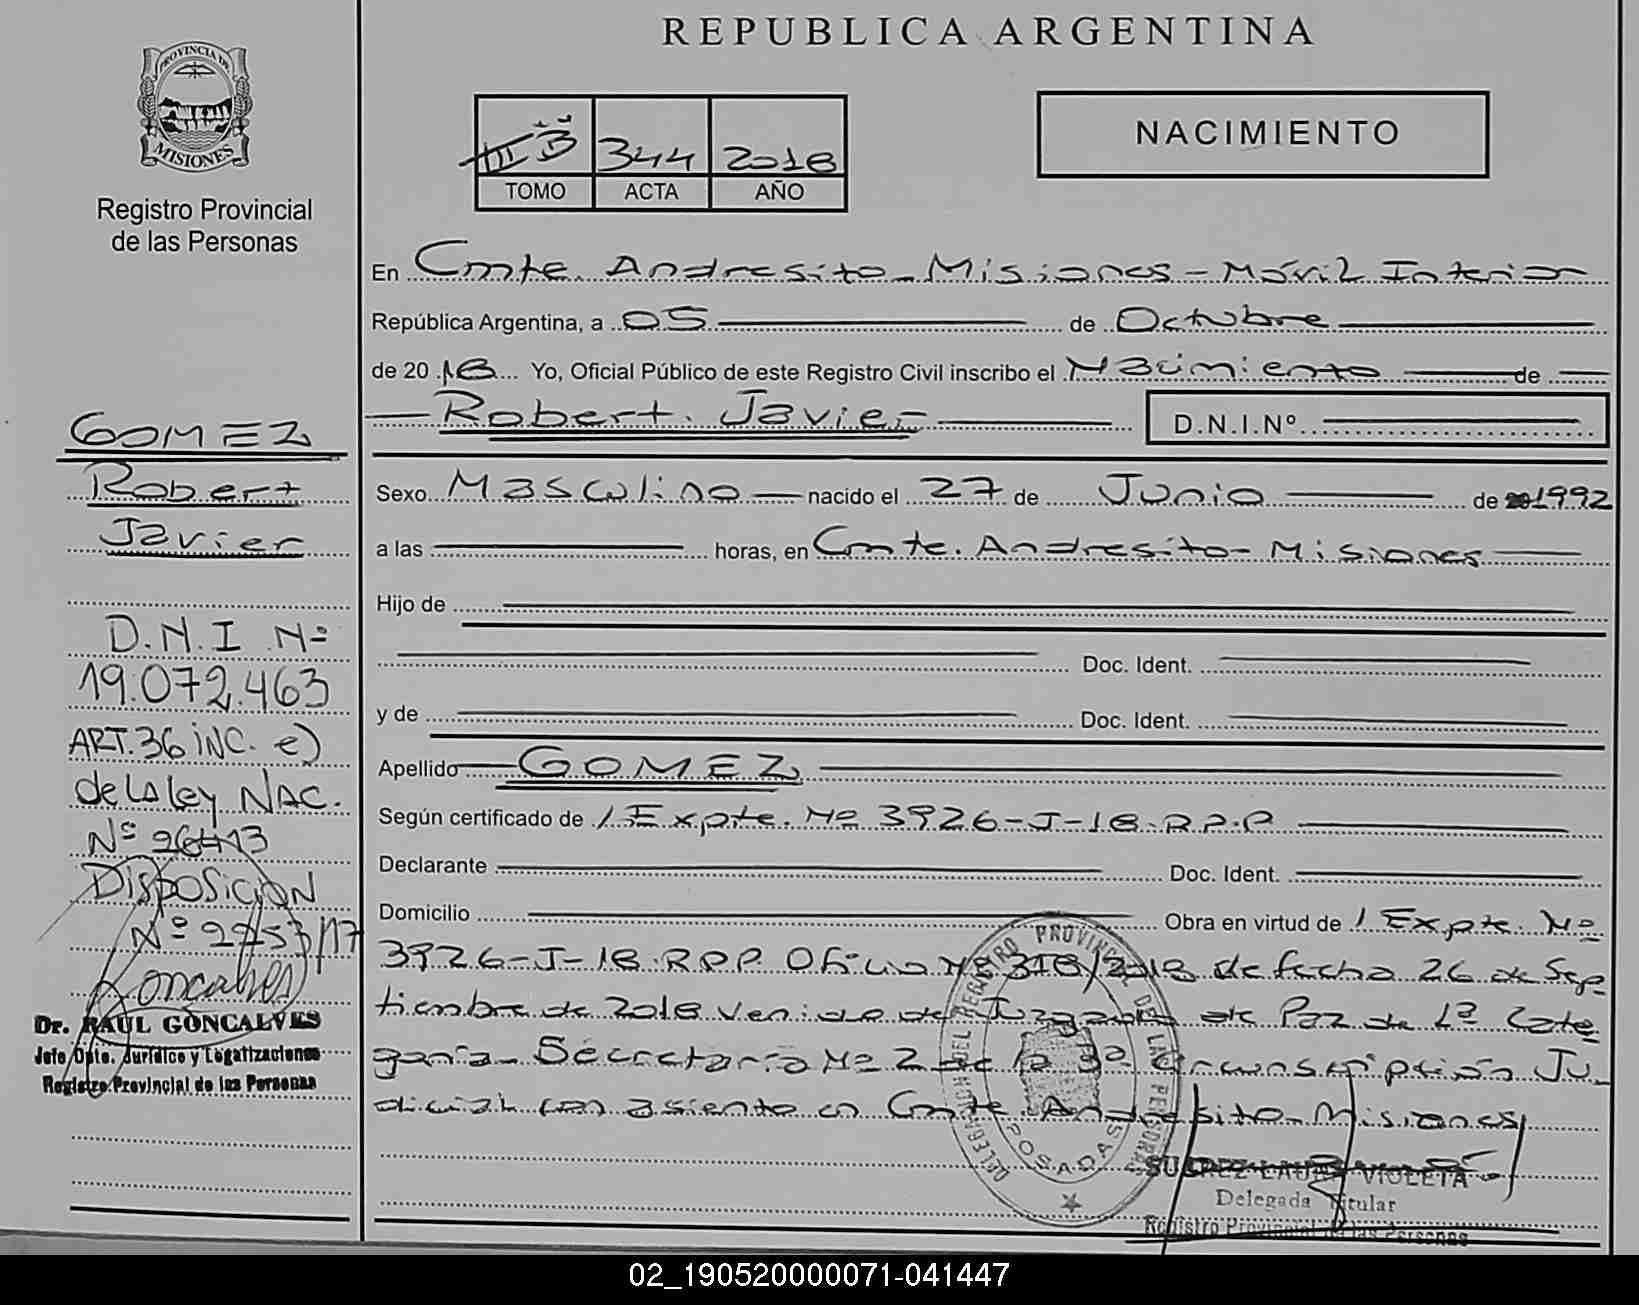 REPUBLICA ARGENTINA
PROVINCIA DE
MISIONES
Registro Provincial
de las Personas
344 2018
TOMO ACTA AÑO
NACIMIENTO
En Cmte. Andresito - Misiones - Móvil Interior
República Argentina, a 05 de Octubre
de 2018 Yo, Oficial Público de este Registro Civil inscribo el Nacimiento de
Robert Javier D.N.I.Nº
Sexo Masculino nacido el 27 de Junio de 1992
a las horas, en Cmte. Andresito - Misiones
Hijo de
Doc. Ident.
y de Doc. Ident.
Apellido GOMEZ
Según certificado de / Expte. Nº 3926-J-18-R.P.P
Declarante Doc. Ident.
Domicilio Obra en virtud de / Expte. Nº
3926-J-18-R.P.P Oficio Nº 318/2018 de fecha 26 de Sep
tiembre de 2018 venido del Juzgado de Paz de 1ª Cate
goría - Secretaría Nº 2 de la 3ª Circunscripción Ju
dicial con asiento en Cmte. Andresito - Misiones
GOMEZ
Robert
Javier
D.N.I Nº
19.072.463
ART. 36 INC. e)
de La Ley NAC.
Nº 26413
DISPOSICION
Nº 2253/17
Goncalves
Dr. RAUL GONCALVES
Jefe Dpto. Jurídico y Legalizaciones
Registro Provincial de las Personas
DELEGACION DEL REGISTRO PROVINCIAL DE LAS PERSONAS
POSADAS
SUAREZ LAURA VIOLETA
Delegada Titular
Registro Provincial de las Personas
02_190520000071-041447